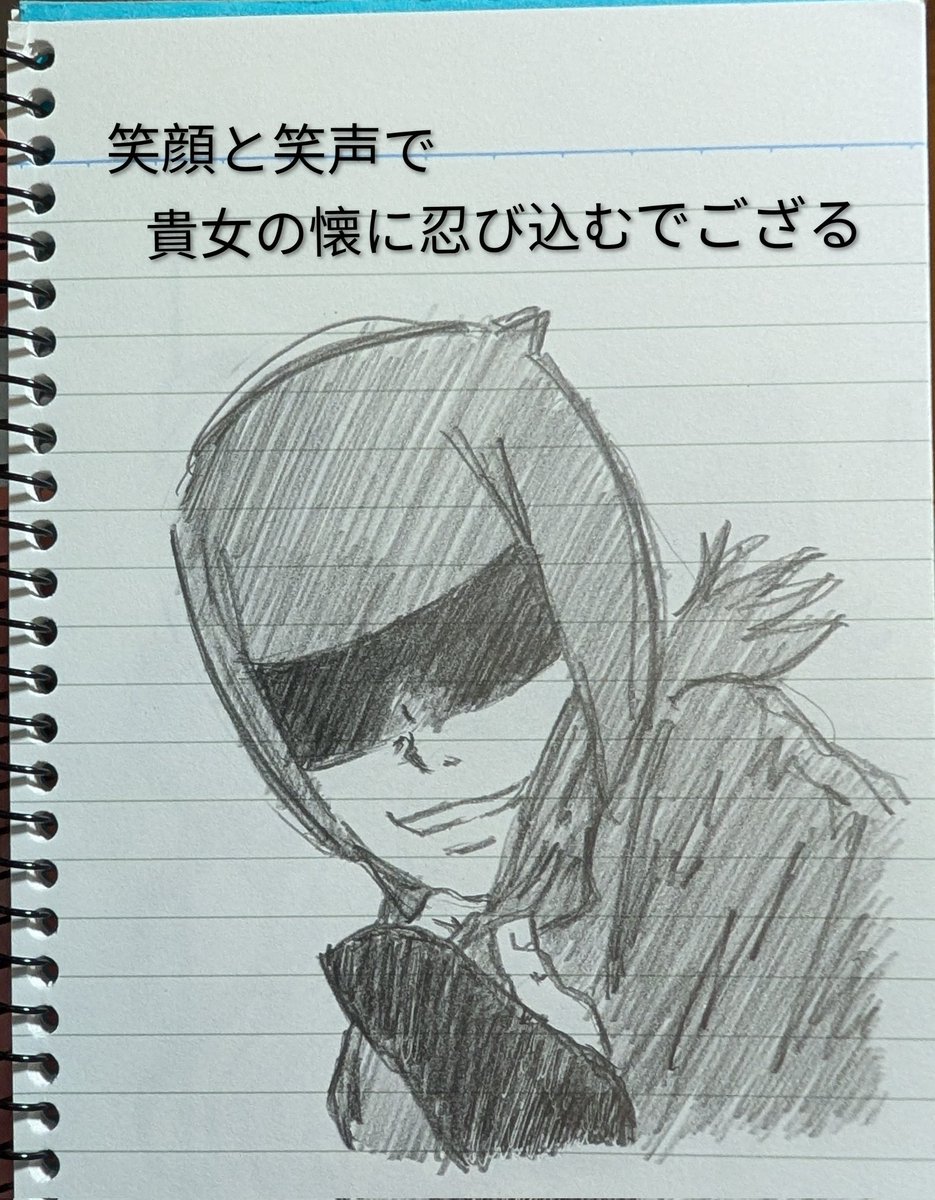 笑顔と笑声で
貴女の懐に忍び込むでござる